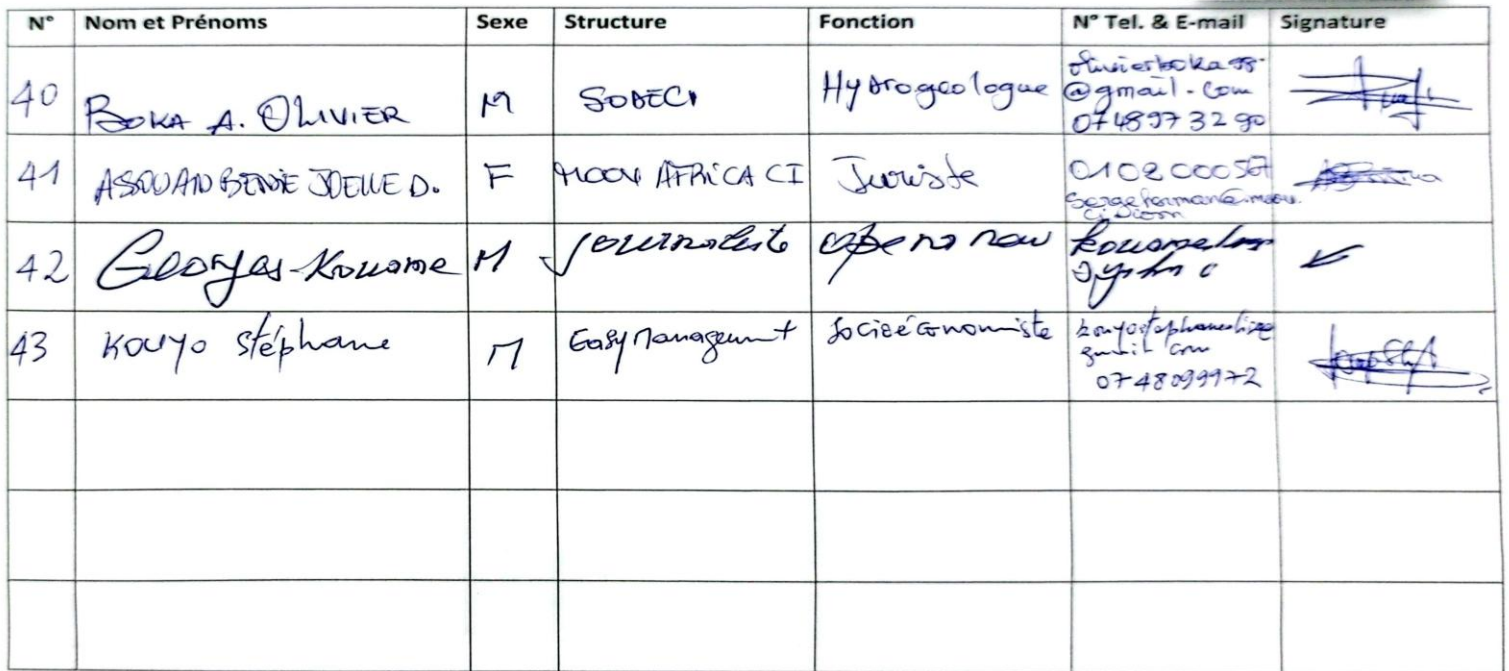 N° Nom et Prénoms Sexe Structure Fonction N° Tel. & E-mail Signature
40 BOKA A. OLIVIER M SODECI Hydrogeologue olivierboka98
@gmail.com
0748973290
41 ASSOUAN BENIE JOELLE D. F MOOV AFRICA CI Juriste 0102000567
42 Georges-Kouame M Journaliste
43 Kouyo Stéphane M Easy Management Socioéconomiste
gmail com
0748099972